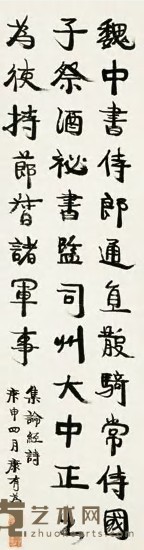 魏中書侍郎通直散騎常侍國
子祭酒祕書監司州大中正
為使持節督諸軍事
集論經詩
庚申四月康有為
艺术网